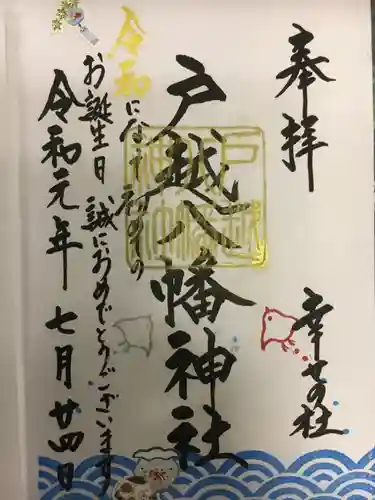 奉拝
幸せの社
戸越八幡神社
令和になり初めての
お誕生日 誠におめでとうございます
令和元年 七月廿四日